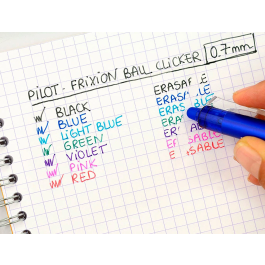 PILOT: FRIXION BALL CLICKER 0.7mm
BLACK
BLUE
LIGHT BLUE
GREEN
VIOLET
PINK
RED
ERASA LE
ERASABLE
ERASABLE
ERA
ER ABLE
ER SABLE
E SABLE